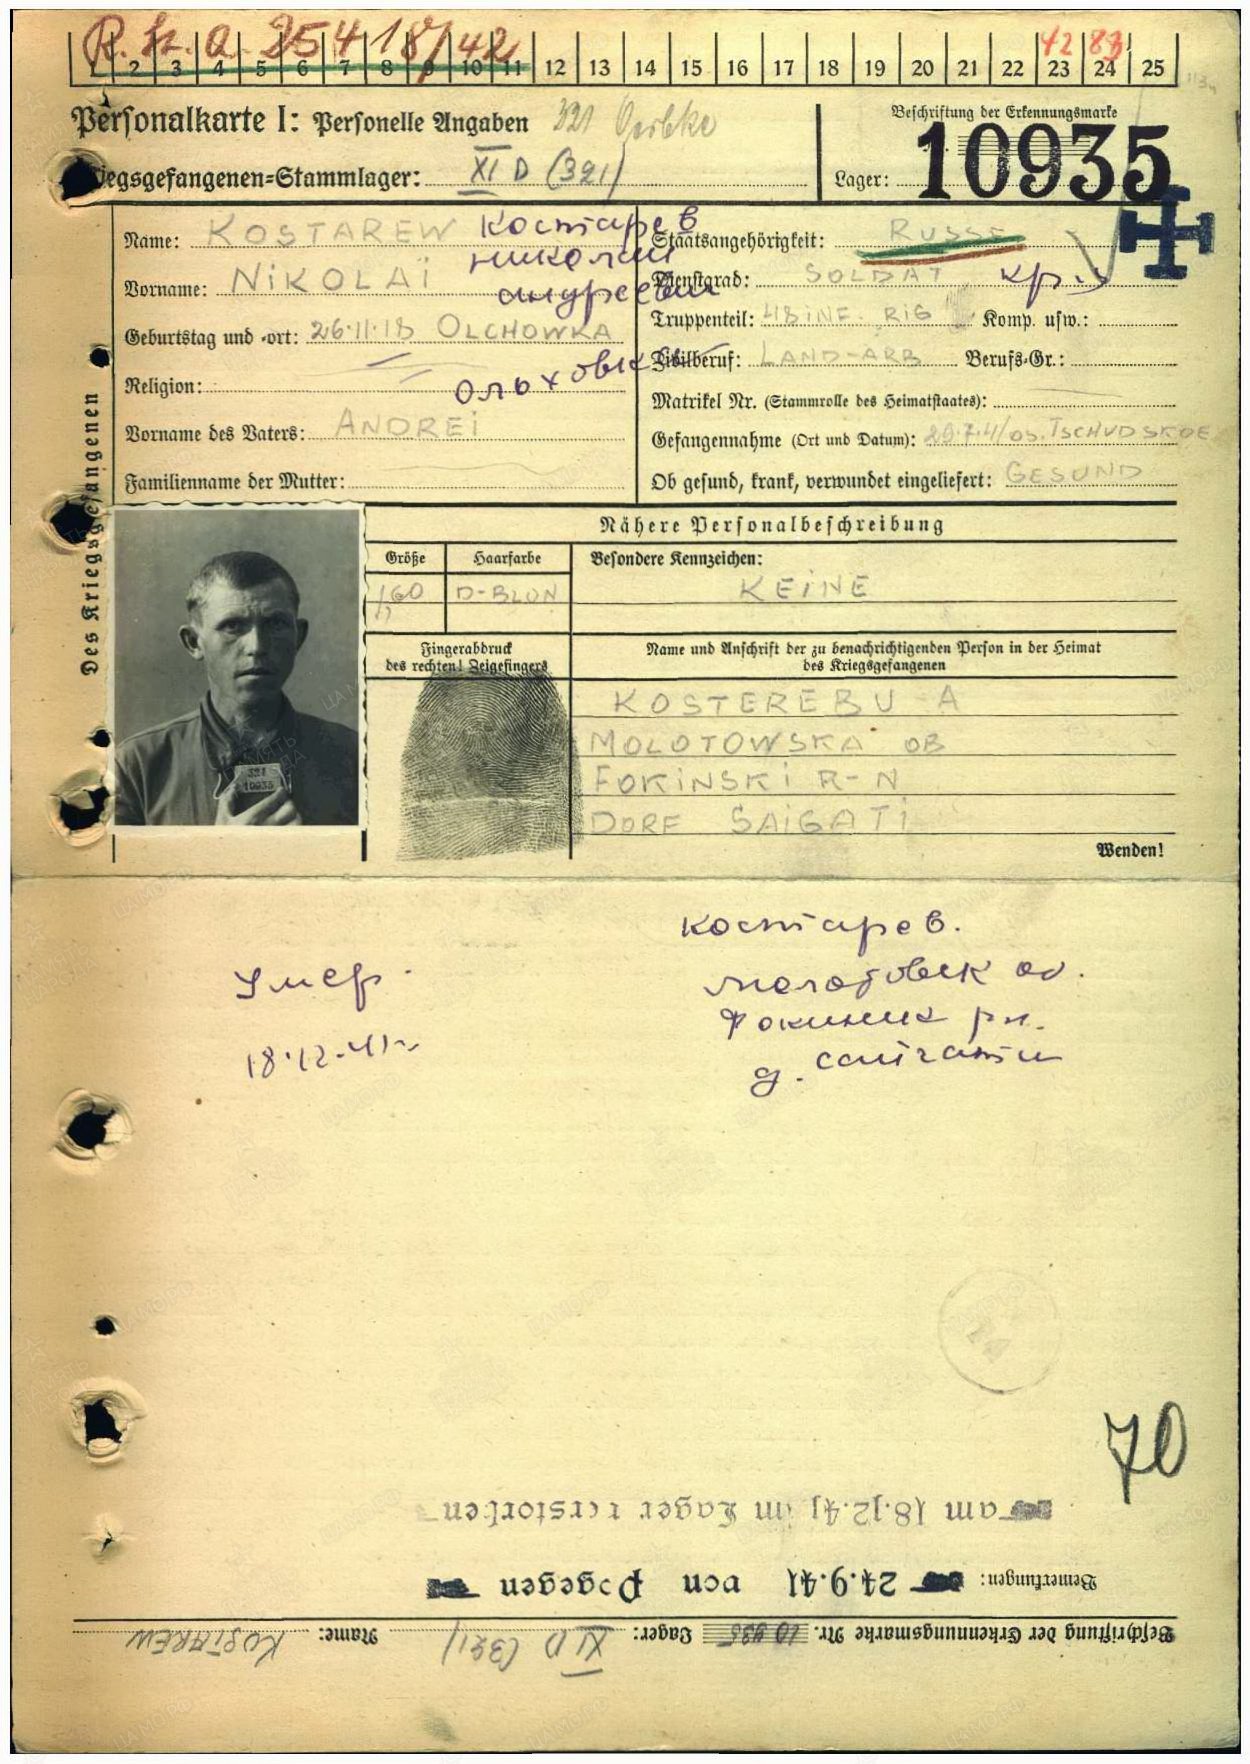 R. H. Q. 25418/42
42 83
1 2 3 4 5 6 7 8 9 10 11 12 13 14 15 16 17 18 19 20 21 22 23 24 25
Personalkarte I: Personelle Angaben 321
Beschriftung der Erkennungsmarke
10935
iegsgefangenen=Stammlager: XI D (321)
Lager:
Name: KOSTAREW Костарев
Николай
Vorname: NIKOLAÏ
андреевич
Geburtstag und -ort: 26.11.18 OLCHOWKA
Religion:
Ольховка
Vorname des Vaters: ANDREI
Familienname der Mutter:
Staatsangehörigkeit: RUSSE
Dienstgrad: SOLDAT кр.
Truppenteil: 48 INF. RIG Komp. usw.:
Zivilberuf: LAND-ARB Berufs-Gr.:
Matrikel Nr. (Stammrolle des Heimatstaates):
Gefangennahme (Ort und Datum): 29.7.41 os. TSCHUDSKOE
Ob gesund, krank, verwundet eingeliefert: GESUND
Des Kriegsgefangenen
Nähere Personalbeschreibung
Größe Haarfarbe Besondere Kennzeichen:
1,60 D-BLON KEINE
Fingerabdruck
des rechten! Zeigefingers
Name und Anschrift der zu benachrichtigenden Person in der Heimat
des Kriegsgefangenen
KOSTEREBU A
MOLOTOWSKA OB
FOKINSKI R-N
DORF SAIGATI
321
10935
Wenden!
Костарев.
Умер.
Молотовск об.
18.12.41г
Фокинск рн.
д. Сайгати
70
am 18.12.41 im Lager verstorben
Bemerkungen: 24.9.41 von Pogegen
Beschriftung der Erkennungsmarke Nr. 10935 Lager: XI D (321) Name: KOSTAREW